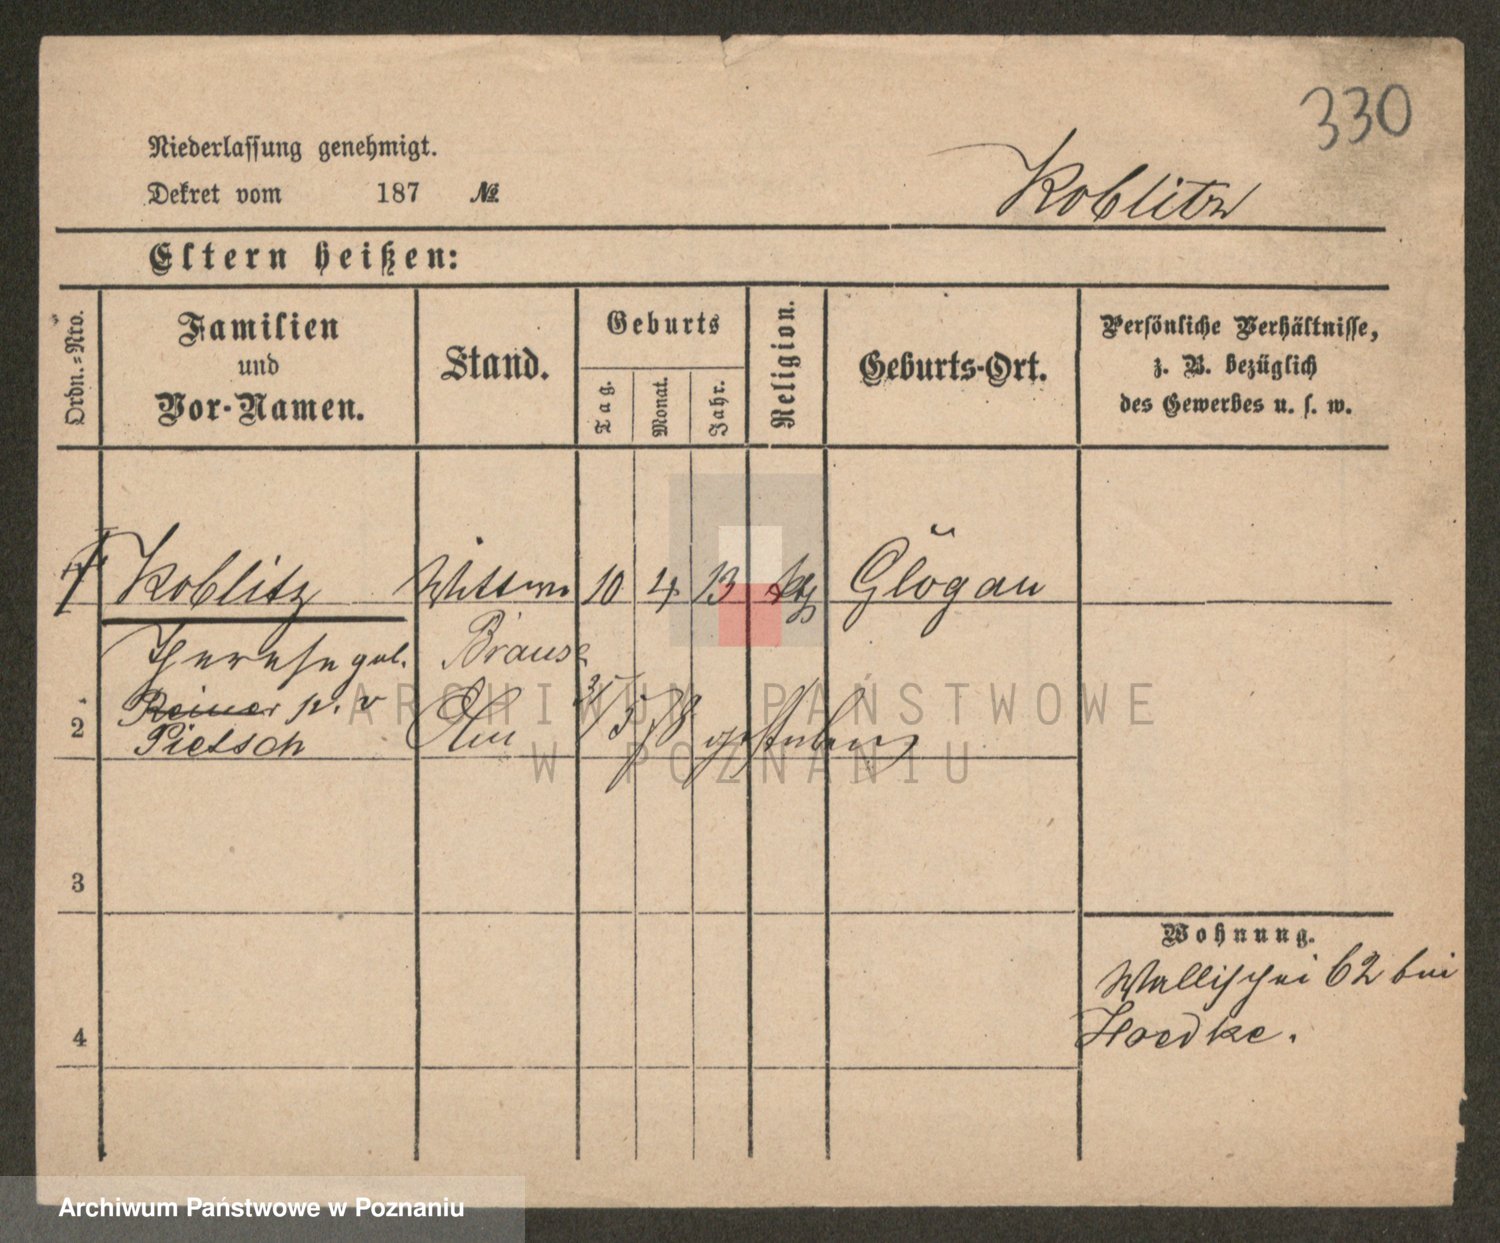 330
Niederlassung genehmigt.
Dekret vom 187 №
Koblitz
Eltern heißen:
Ordn.-Nro.
Familien
und
Vor-Namen.
Stand.
Geburts
Tag.
Monat.
Jahr.
Religion.
Geburts-Ort.
Persönliche Verhältnisse,
z. B. bezüglich
des Gewerbes u. s. w.
Koblitz Wittwe 10 4 13 Glogau
Therese geb. Brause
Reiner p. v
2 Pietsch 31/5 78 gestorben
3
4
Wohnung.
Wallischei 62 bei
Hoedke.
ARCHIWUM PAŃSTWOWE
W POZNANIU
Archiwum Państwowe w Poznaniu